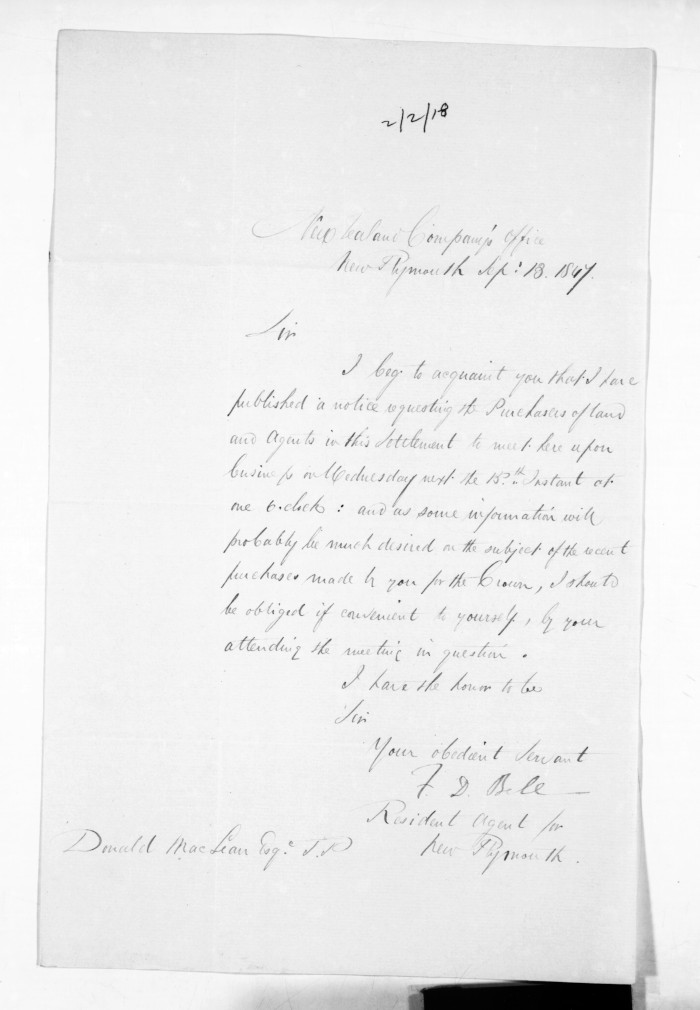 2/2/18
New Zealand Company's Office
New Plymouth Sep: 13. 1847.
Sir
I beg to acquaint you that I have
published a notice requesting the Purchasers of land
and Agents in this Settlement to meet here upon
business on Wednesday next the 15th Instant at
one o'clock: and as some information will
probably be much desired on the subject of the recent
purchases made by you for the Crown, I should
be obliged if convenient to yourself, by your
attending the meeting in question.
I have the honor to be
Sir
Your obedient Servant
F. D. Bell
Resident Agent for
New Plymouth.
Donald MacLean Esq. J.P